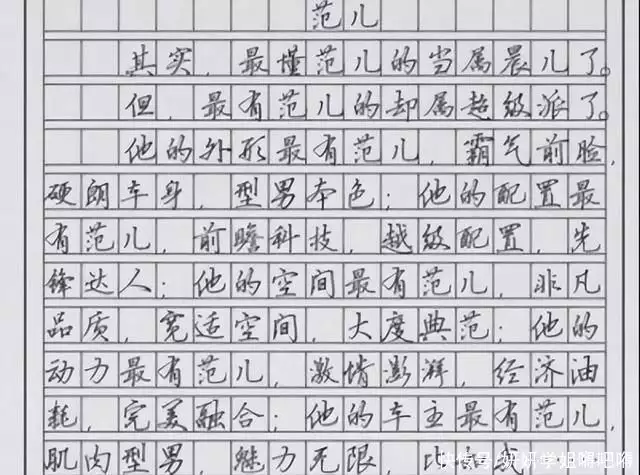 范儿
其实，最懂范儿的当属晨儿了。
但，最有范儿的却属超级派了。
他的外形最有范儿，霸气前脸，
硬朗车身，型男本色；他的配置最
有范儿，前瞻科技，越级配置，先
锋达人；他的空间最有范儿，非凡
品质，宽适空间，大度典范；他的
动力最有范儿，激情澎湃，经济油
耗，完美融合；他的车主最有范儿，
肌肉型男，魅力无限，
快传号·妍妍学姐嘚吧嘚